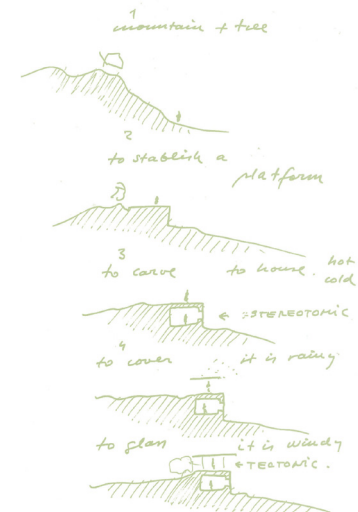 1
mountain + tree
2
to stablish a
platform
3
to carve to house. hot
cold
← :STEREOTOMIC
4
to cover it is rainy
to glass it is windy
← TECTONIC.